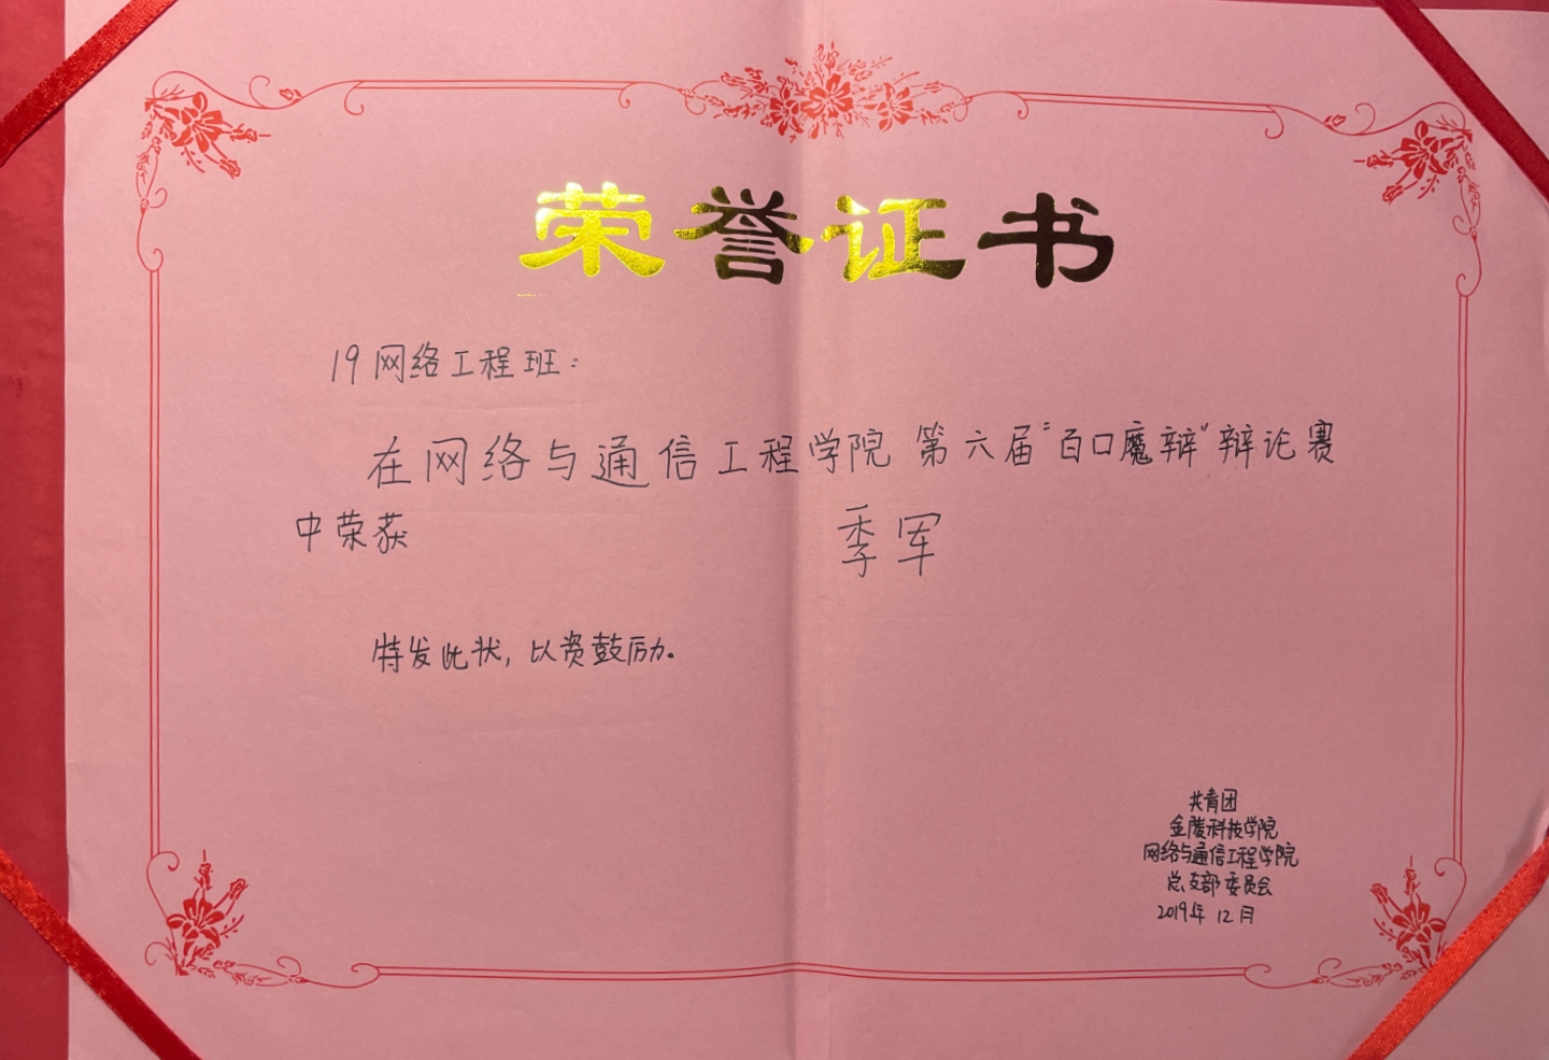 荣誉证书
19网络工程班:
在网络与通信工程学院 第六届“百口魔辩”辩论赛
中荣获 季军
特发此状,以资鼓励。
共青团
金陵科技学院
网络与通信工程学院
总支部委员会
2019年 12月